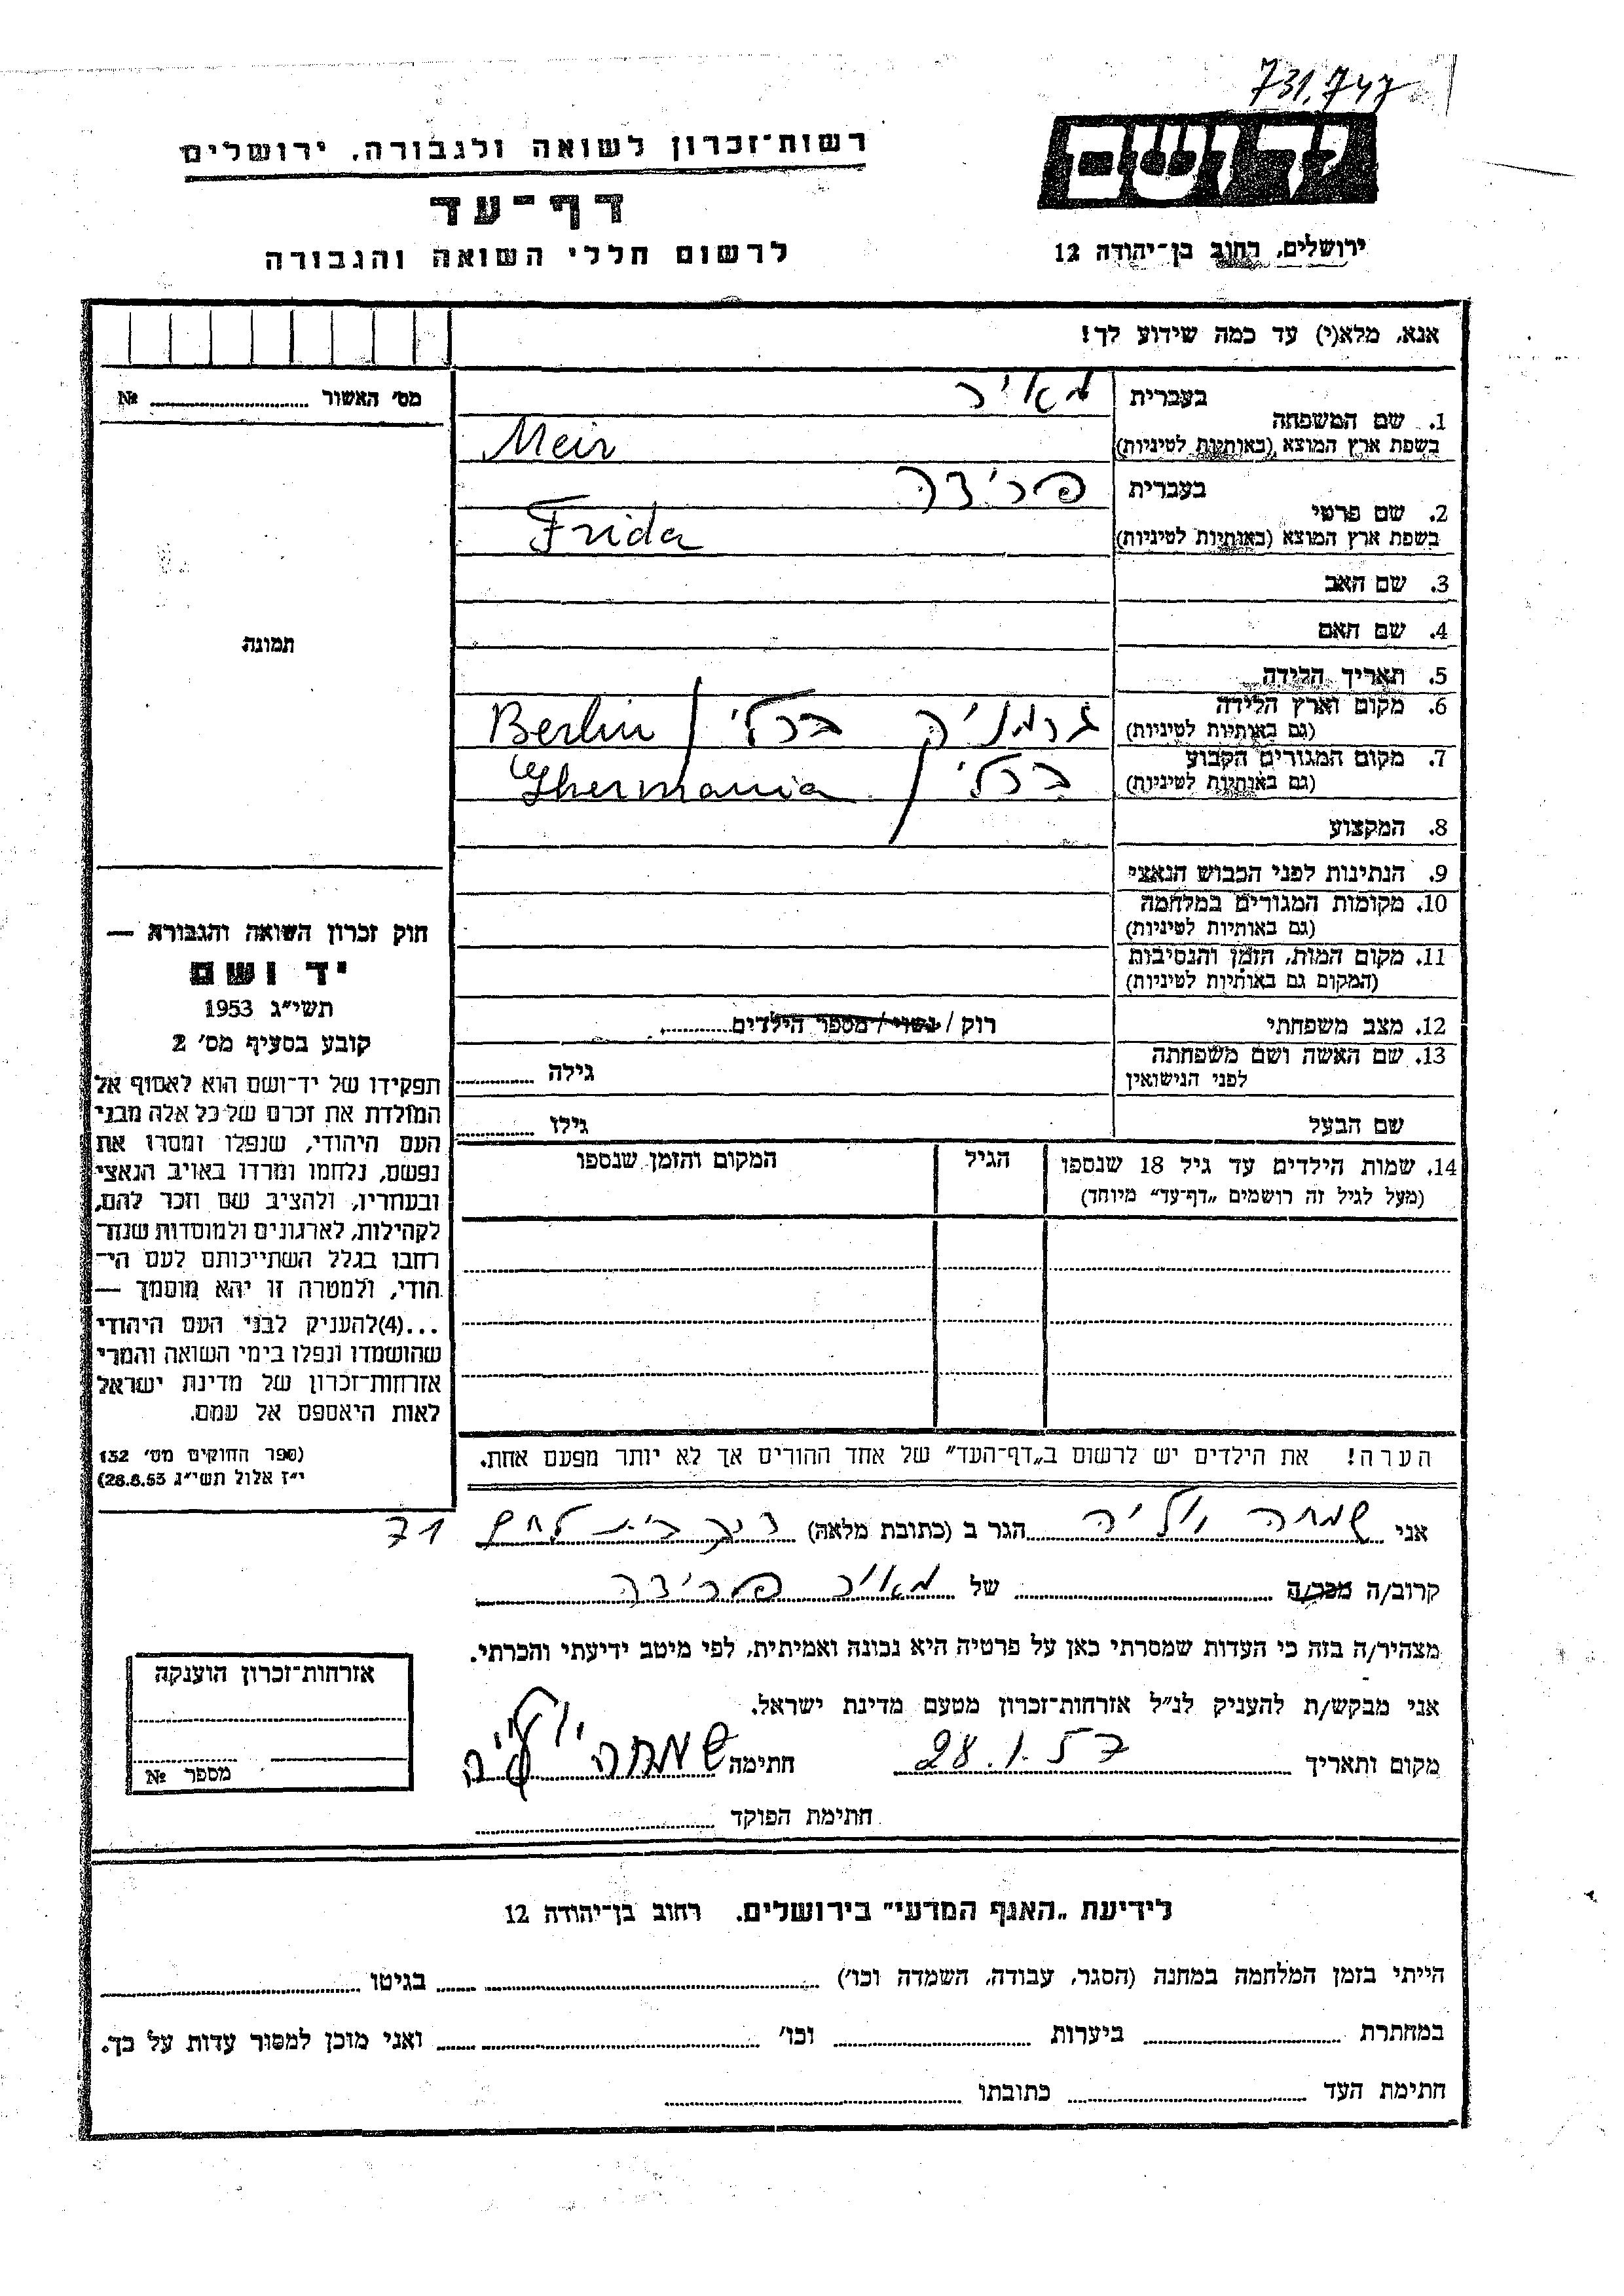 731,747
יד ושם
רשות־זכרון לשואה ולגבורה, ירושלים
דף־עד
לרשום חללי השואה והגבורה
ירושלים, רחוב בן־יהודה 12
אנא, מלא(י) עד כמה שידוע לך!
מס׳ האשור № 
1. שם המשפחה
בעברית מאיר
בשפת ארץ המוצא (באותיות לטיניות) Meir
2. שם פרטי
בעברית פרידה
בשפת ארץ המוצא (באותיות לטיניות) Frida
3. שם האב
4. שם האם
5. תאריך הלידה
6. מקום וארץ הלידה
(גם באותיות לטיניות) גרמניה ברלין / Berlin
7. מקום המגורים הקבוע
(גם באותיות לטיניות) ברלין Ghermania
8. המקצוע
9. הנתינות לפני הכבוש הנאצי
10. מקומות המגורים במלחמה
(גם באותיות לטיניות)
11. מקום המות, הזמן והנסיבות
(המקום גם באותיות לטיניות)
12. מצב משפחתי רוק / נשוי / מספר הילדים
13. שם האשה ושם משפחתה
לפני הנישואין
גילה
שם הבעל גילו
14. שמות הילדים עד גיל 18 שנספו הגיל המקום והזמן שנספו
(מעל לגיל זה רושמים „דף־עד" מיוחד)
הערה! את הילדים יש לרשום ב„דף־העד" של אחד ההורים אך לא יותר מפעם אחת.
תמונה
חוק זכרון השואה והגבורה —
יד ושם
תשי״ג 1953
קובע בסעיף מס׳ 2
תפקידו של יד־ושם הוא לאסוף אל
המולדת את זכרם של כל אלה מבני
העם היהודי, שנפלו ומסרו את
נפשם, נלחמו ומרדו באויב הנאצי
ובעוזריו, ולהציב שם וזכר להם,
לקהילות, לארגונים ולמוסדות שנח־
רחבו בגלל השתייכותם לעם הי־
הודי, ולמטרה זו יהא מוסמך —
...(4) להעניק לבני העם היהודי
שהושמדו ונפלו בימי השואה והמרי
אזרחות־זכרון של מדינת ישראל
לאות היאספם אל עמם.
(ספר החוקים מס׳ 132
י״ז אלול תשי״ג 28.8.53)
אני שמחה יוליה הגר ב (כתובת מלאה) דרך בית לחם 71
קרוב/ה מכר/ה של מאיר פרידה
מצהיר/ה בזה כי העדות שמסרתי כאן על פרטיה היא נכונה ואמיתית, לפי מיטב ידיעתי והכרתי.
אני מבקש/ת להעניק לנ״ל אזרחות־זכרון מטעם מדינת ישראל.
מקום ותאריך 28.1.57 חתימה שמחה יוליה
חתימת הפוקד
אזרחות־זכרון הוענקה
מספר №
לידיעת „האגף המדעי" בירושלים. רחוב בן־יהודה 12
הייתי בזמן המלחמה במחנה (הסגר, עבודה, השמדה וכו׳) בגיטו
במחתרת ביערות וכו׳ ואני מוכן למסור עדות על כך.
חתימת העד כתובתו